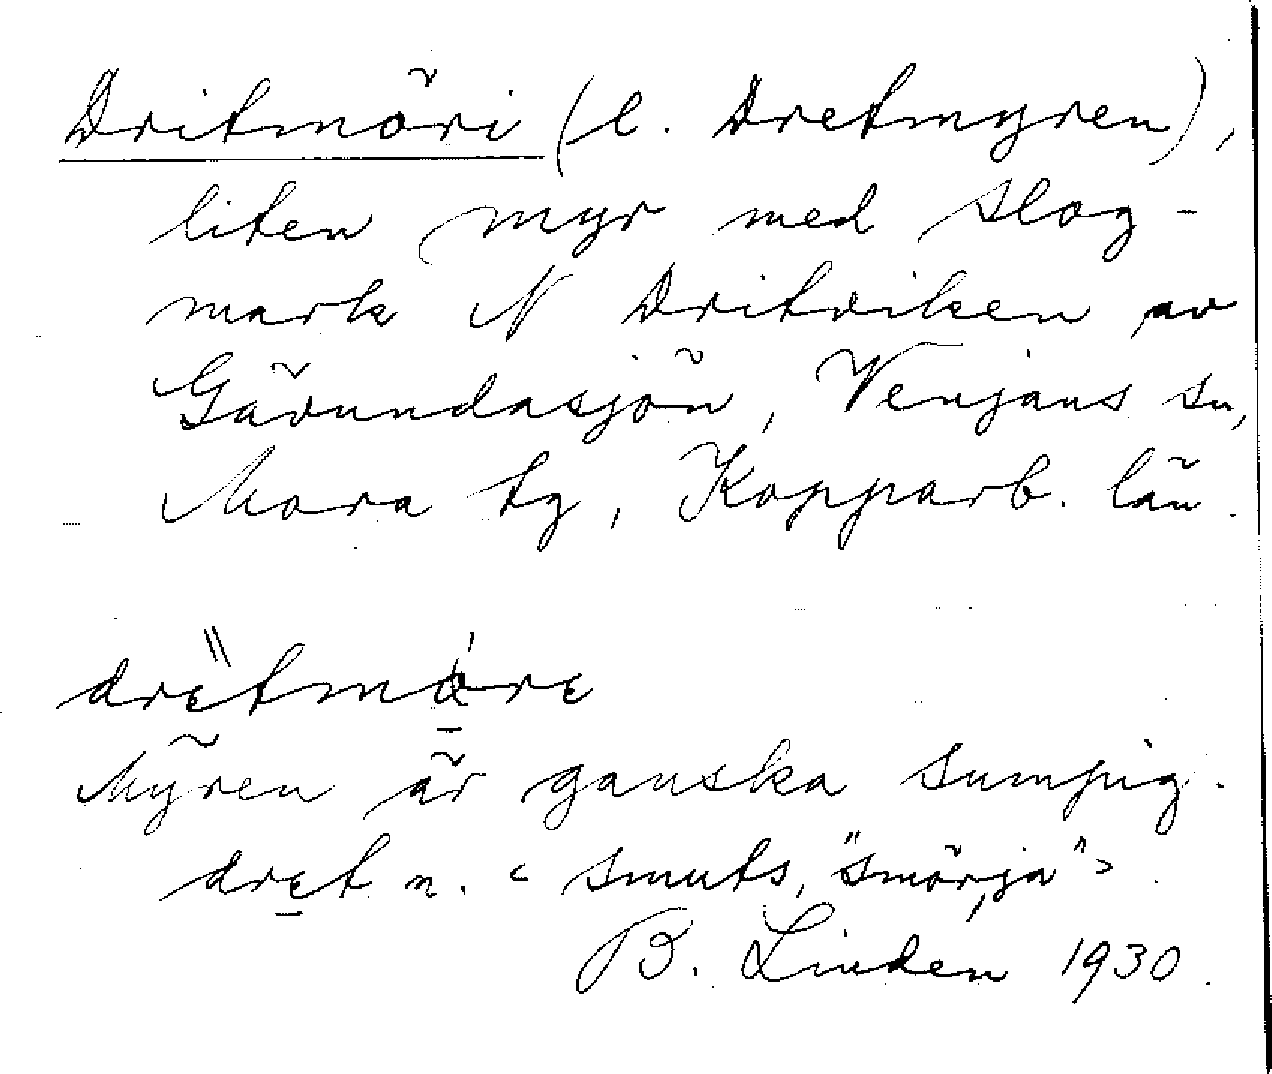 Dritmöri (l. Dretmyren),
liten myr med slog-
mark N Dritviken av
Gävundasjön, Venjans sn,
Mora tg, Kopparb. län.
drɛtmörɛ
Myren är ganska sumpig.
drɛt n. < smuts, "smörja" >
B. Linden 1930.